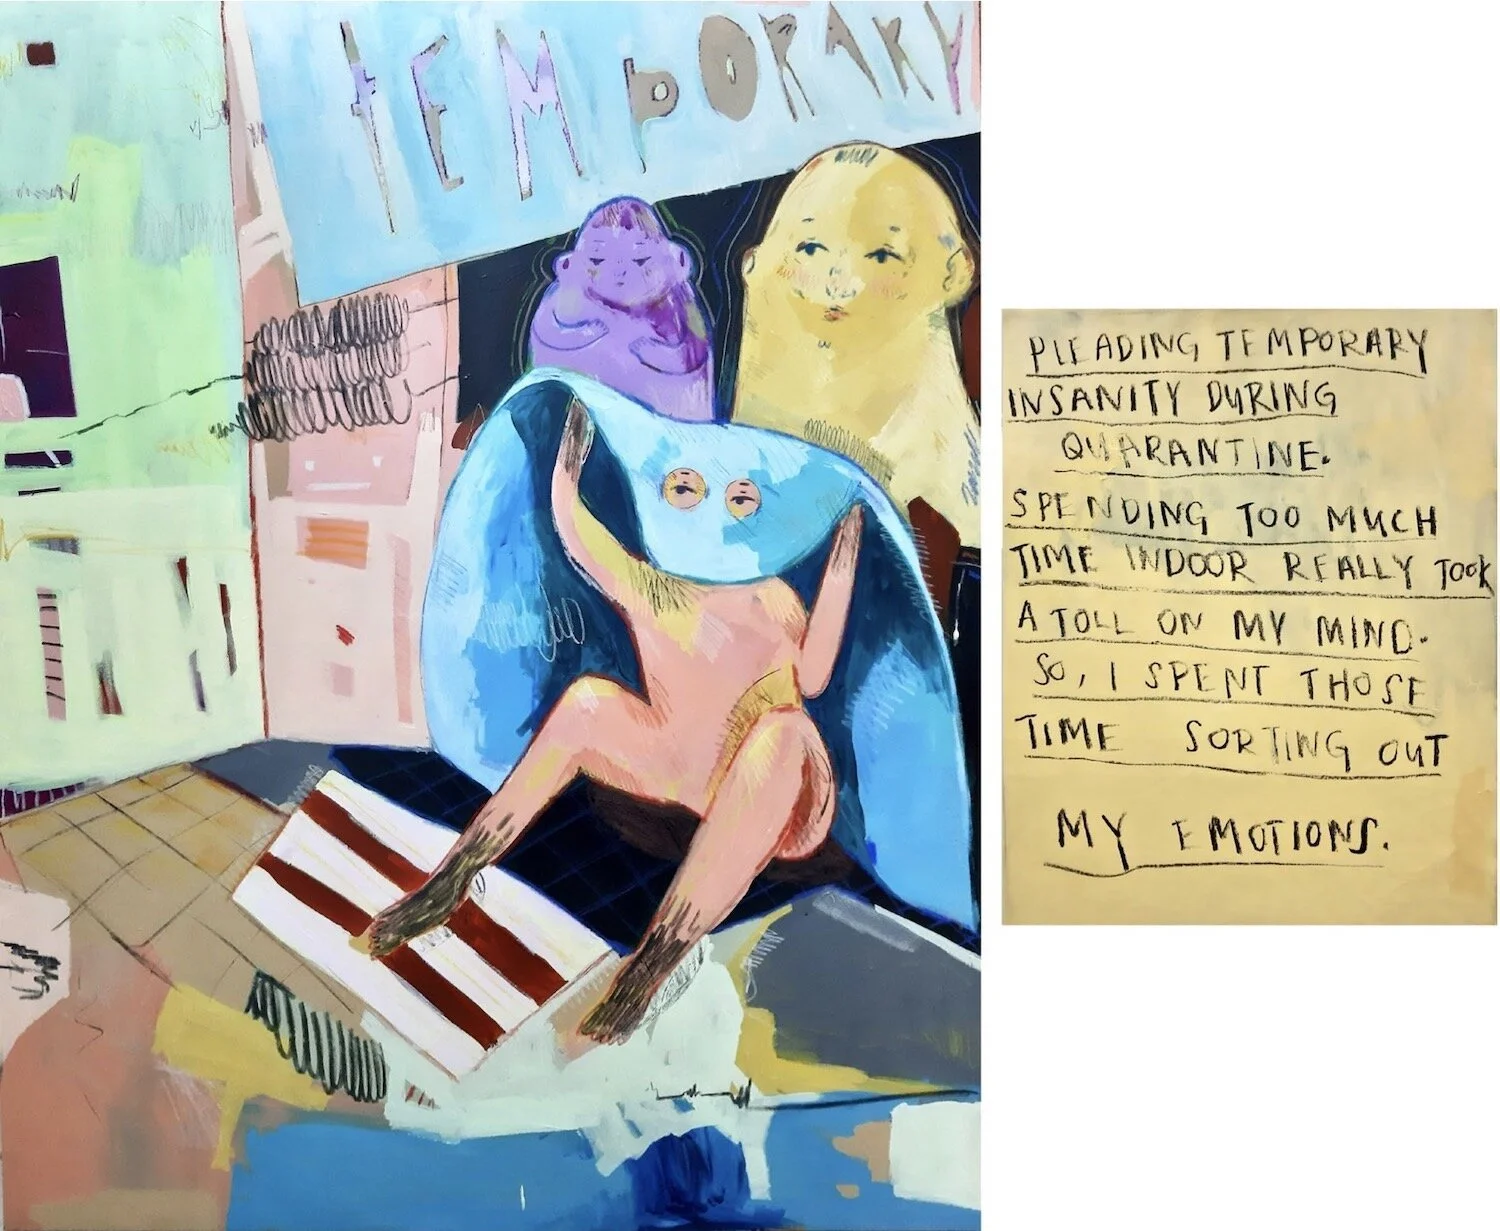 TEMPORARY
PLEADING TEMPORARY
INSANITY DURING
QUARANTINE.
SPENDING TOO MUCH
TIME INDOOR REALLY TOOK
A TOLL ON MY MIND.
SO, I SPENT THOSE
TIME SORTING OUT
MY EMOTIONS.